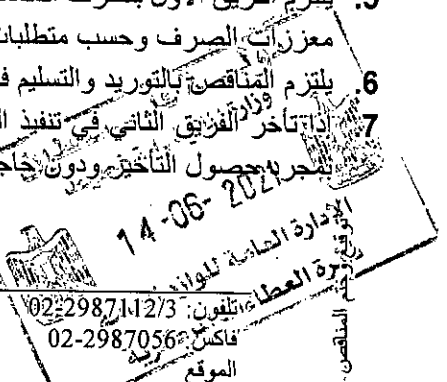 5. يلتزم الفريق الأول بصرف
معززات الصرف وحسب متطلبات
6. يلتزم المناقص بالتوريد والتسليم
7. إذا تأخر الفريق الثاني في تنفيذ
بمجرد حصول التأخير ودون
وزارة
14-06-2021
الإدارة العامة للوازم
تلفون: 02-2987112/3
فاكس: 02-2987056
الموقع
توقيع وختم المناقص